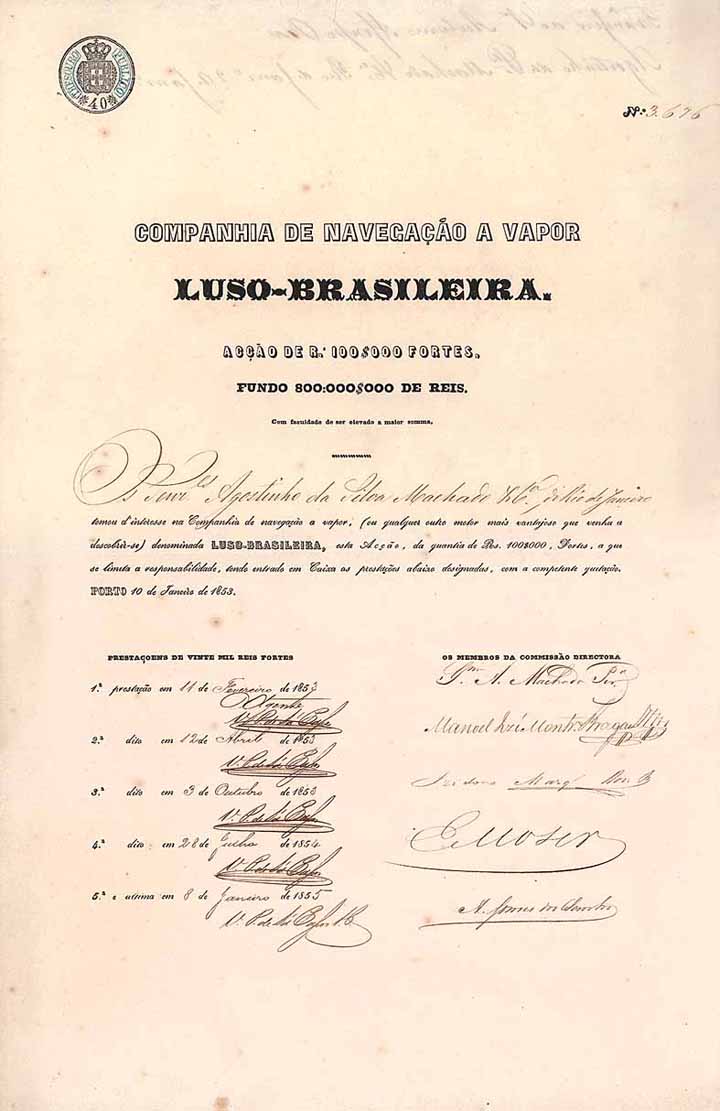 THESOURO PUBLICO
40
N.º 3.676
COMPANHIA DE NAVEGAÇÃO A VAPOR
LUSO-BRASILEIRA.
ACÇÃO DE R.ˢ 100$000 FORTES.
FUNDO 800:000$000 DE REIS.
Com faculdade de ser elevado a maior somma.
Os Senr.ᵉˢ Agostinho da Silva Machado & C.ª, do Rio de Janeiro
tomou d'interesse na Companhia de navegação a vapor, (ou qualquer outro motor mais vantajoso que venha a
descobrir-se) denominada LUSO-BRASILEIRA, esta Acção, da quantia de Res. 100$000, Fortes, a que
se limita a responsabilidade, tendo entrado em Caixa as prestações abaixo designadas, com a competente quitação.
PORTO 10 de Janeiro de 1853.
PRESTAÇOENS DE VINTE MIL REIS FORTES
1.ª prestação em 11 de Fevereiro de 1853
O Agente
2.ª dito em 12 de Abril de 1853
3.ª dito em 3 de Outubro de 1853
4.ª dito: em 28 de Julho de 1854
5.ª e ultima em 8 de Janeiro de 1855
OS MEMBROS DA COMMISSÃO DIRECTORA
A. Machado
Manoel José Mont.ʳᵒ Braga
Izidoro Marq
E Moser
A. Gomes dos